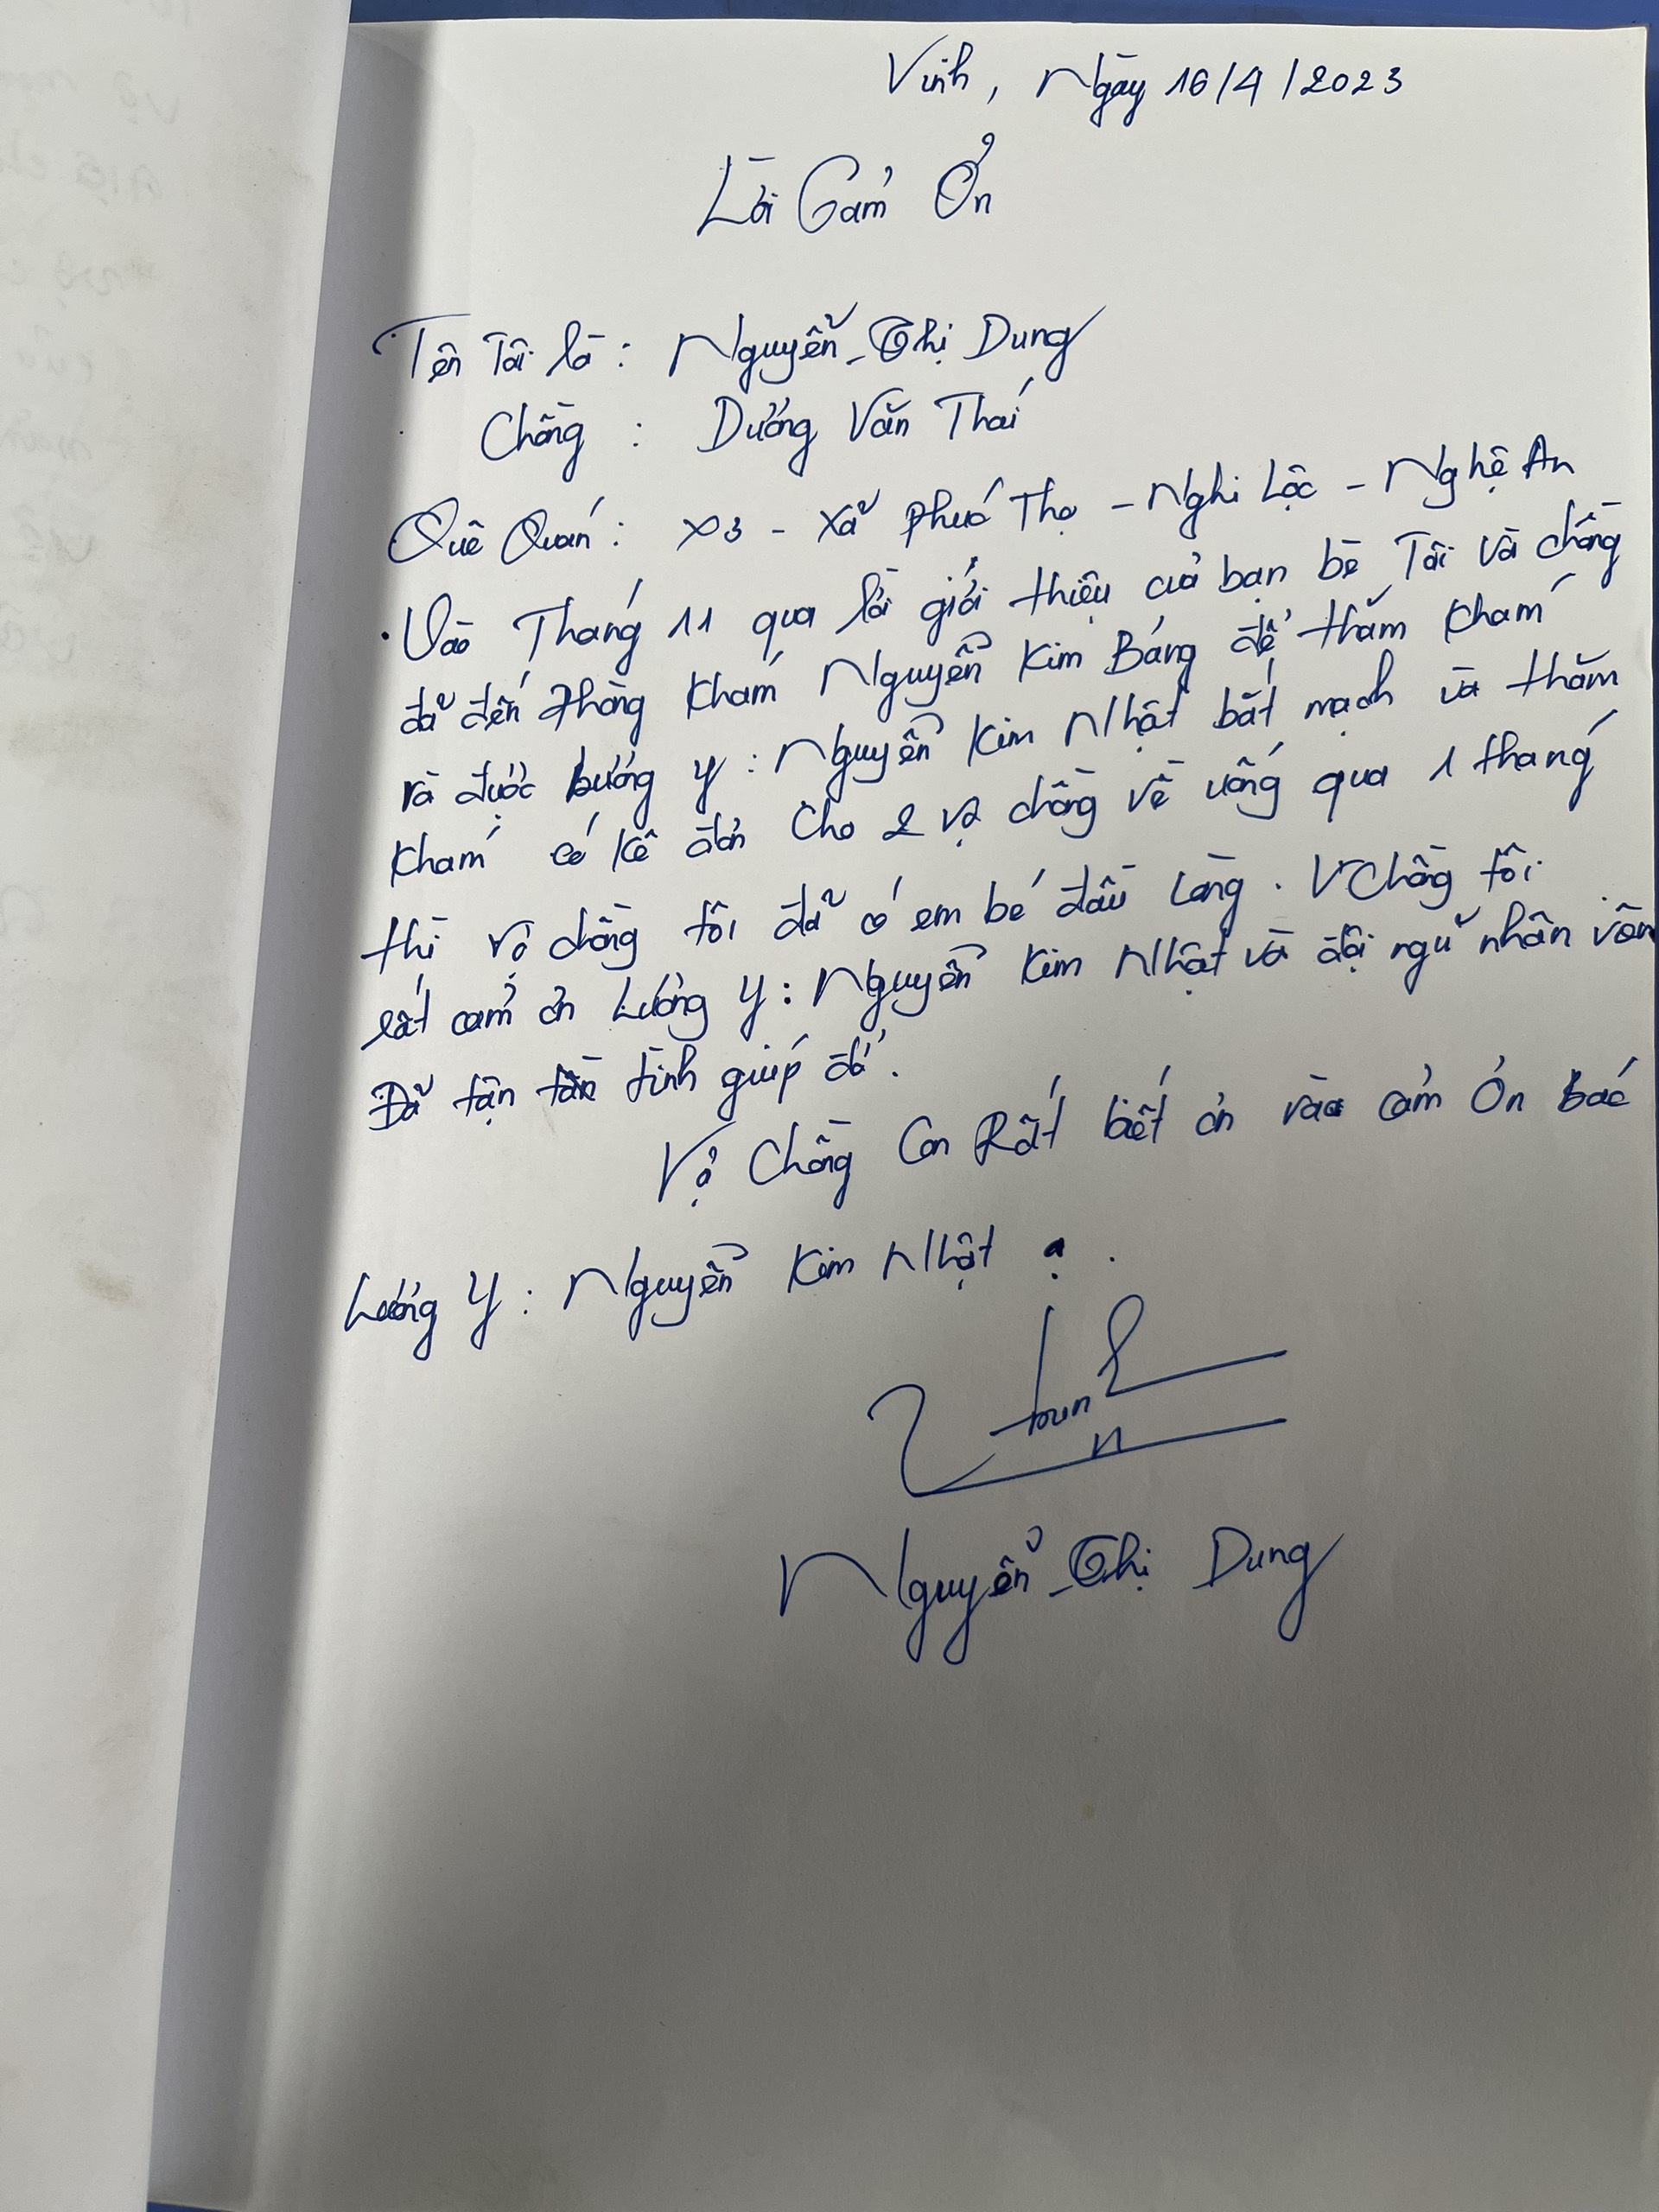 Vinh, Ngày 16/4/2023
Lời Cảm Ơn
Tên Tôi là : Nguyễn Thị Dung
Chồng : Dương Văn Thái
Quê Quán : X3 - Xã Phúc Thọ - Nghi Lộc - Nghệ An
Vào Tháng 11 qua lời giới thiệu của bạn bè Tôi và chồng
đã đến phòng khám Nguyễn Kim Bảng để thăm khám
và được Lương y : Nguyễn Kim Nhật bắt mạch và thăm
khám có kê đơn cho 2 vợ chồng về uống qua 1 tháng
thì vợ chồng tôi đã có em bé đầu lòng. V Chồng tôi
rất cảm ơn Lương y : Nguyễn Kim Nhật và đội ngũ nhân viên
Đã tận tình giúp đỡ.
Vợ Chồng Con Rất biết ơn và cảm ơn bác
Lương y : Nguyễn Kim Nhật ạ.
Nguyễn Thị Dung